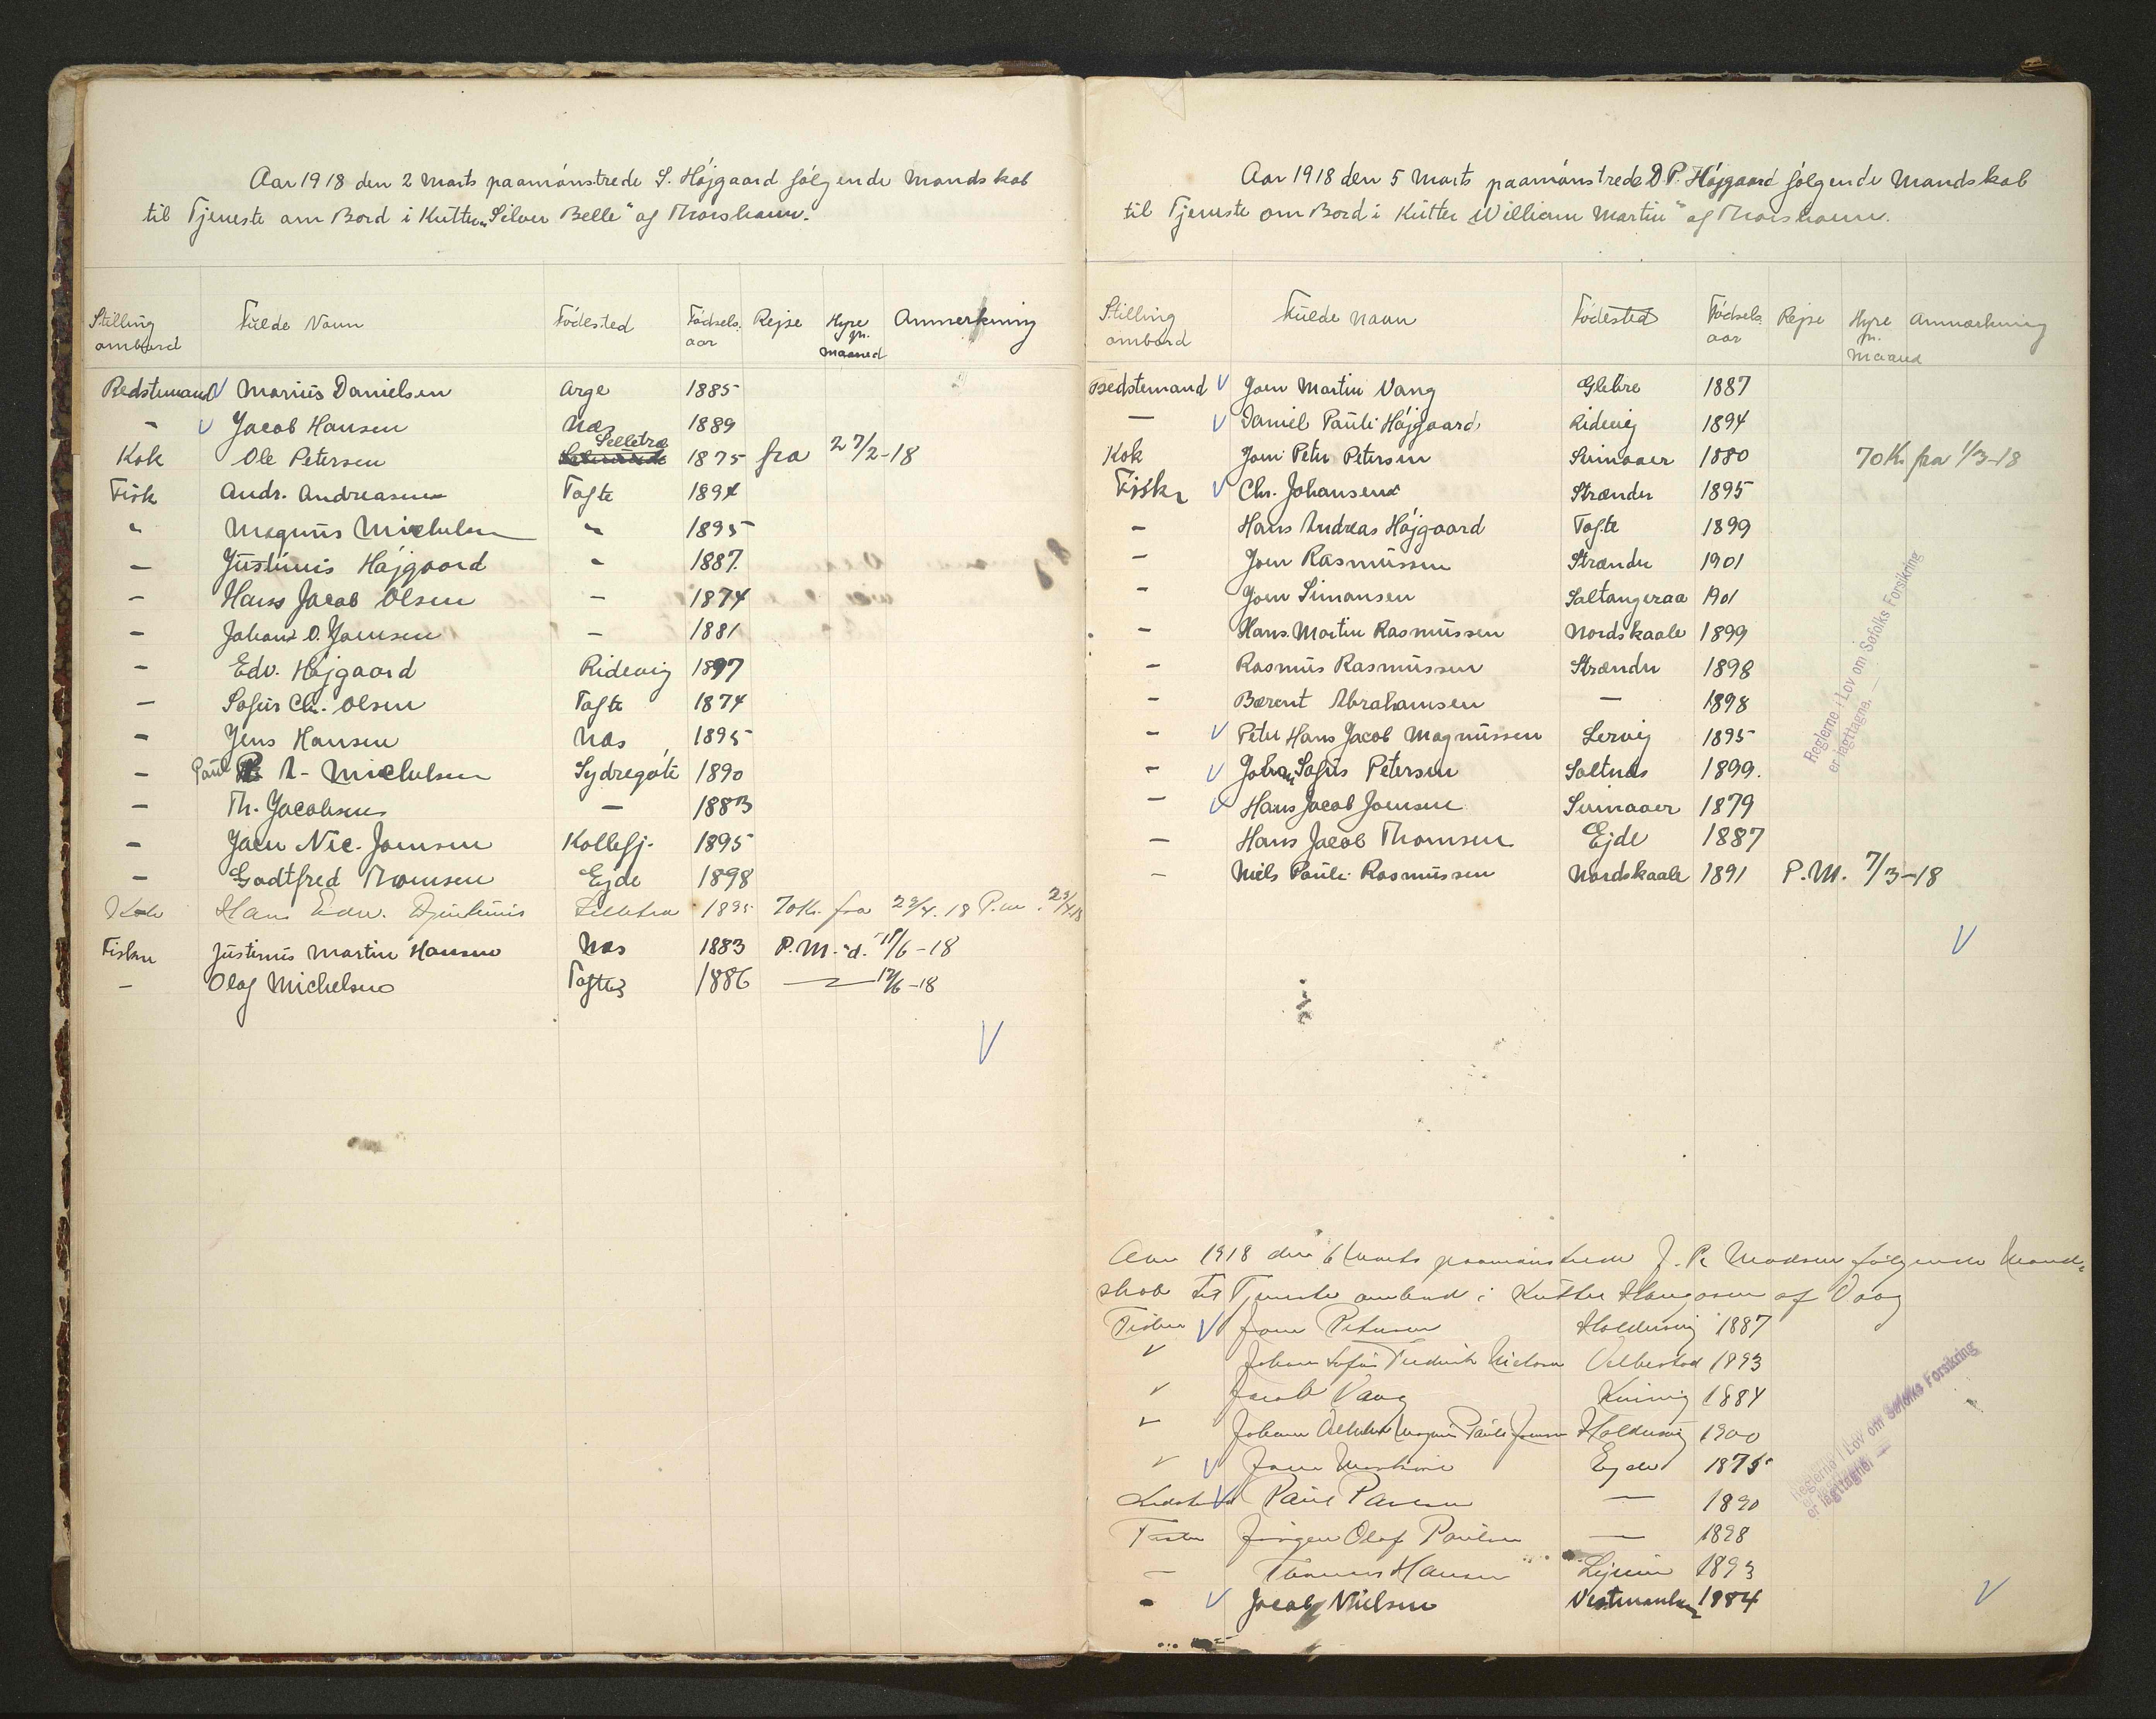 Aar 1918 den 2 Marts paamönstrede S. Højgaard følgende Mandskab
til Tjeneste om Bord i Kutter „Silver Belle“ af Thorshavn.
Stilling ombord Fulde Navn Födested Födsels aar Rejse Hyre pr. Maaned Anmerkning
Bedstemand Marius Danielsen Arge 1885
- Jacob Hansen Næs 1889
Kok Ole Petersen Selletræ 1875 fra 27/2-18
Fisk Andr. Andreasen Tofte 1894
" Magnus Michelsen " 1895
- Justinus Højgaard - 1887.
- Hans Jacob Olsen - 1874
- Johan D. Joensen - 1881
- Edv. Højgaard Ridevig 1897
- Sofus Chr. Olsen Tofte 1874
- Jens Hansen Næs 1895
- Paul A- Michelsen Sydregøte 1890
- Th. Jacobsen - 1883
- Joen Nic. Joensen Kollefj. 1895
- Godtfred Thomsen Ejde 1898
Kok Hans Edv. 1895 70 Kr. fra 29/4. 18 P.m. 29/4 18
Fisker Justinus Martin Hansen Næs 1883 P.M. d. 11/6-18
- Olaf Michelsen Tofte 1886 — 12/6-18
Aar 1918 den 5 Marts paamönstrede D P. Højgaard følgende Mandskab
til Tjeneste om Bord i Kutter „William Martin“ af Thorshavn.
Stilling ombord Fulde Navn Födested Födsels aar Rejse Hyre pr. Maaned Anmærkning
Bedstemand Joen Martin Vang Glibre 1887
- Daniel Pauli Højgaard Ridevig 1894
Kok Joen Peter Petersen Sumaaer 1880 70 Kr. fra 1/3-18
Fisker Chr. Johansen Strænder 1895
- Hans Andreas Højgaard Tofte 1899
- Joen Rasmussen Strænder 1901
- Joen Simonsen Saltangeraa 1901
- Hans Martin Rasmussen Nordskaale 1899
- Rasmus Rasmussen Strænder 1898
- Barent Abrahamsen - 1898
- Peter Hans Jacob Magnussen Lervig 1895
- Johan Sofus Petersen Saltnæs 1899.
- Hans Jacob Joensen Sumaaer 1879
- Hans Jacob Thomsen Ejde 1887
- Niels Pauli Rasmussen Nordskaale 1891 P.M. 7/3-18
Reglerne i Lov om Søfolks Forsikring
er iagttagne. —
Aar 1918 den 6 Marts paamönstrede J. P. Madsen følgende Mand-
skab til Tjeneste ombord i Kutter af Vaag
Fisker Joen Petersen Haldersvig 1887
" Johan Sofus Fredrik Nielsen Velbestad 1893
" Jacob Vang Kunvig 1884
" Johan Magnus Pauli Joensen Haldersvig 1900
" Joen Ejde 1875
Bedstemand Paul - 1890
Fisker Jørgen Olaf Poulsen - 1898
- Thomas Hansen 1893
- Jacob Nielsen Vestmanhavn 1884
Reglerne i Lov om Søfolks Forsikring
er iagttagne. —